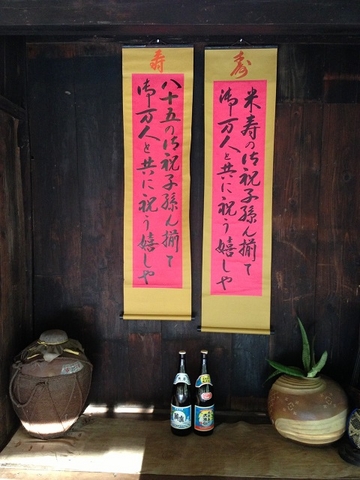 寿
米寿の御祝子孫ん揃て
御万人と共に祝う嬉しや
寿
八十五の御祝子孫ん揃て
御万人と共に祝う嬉しや